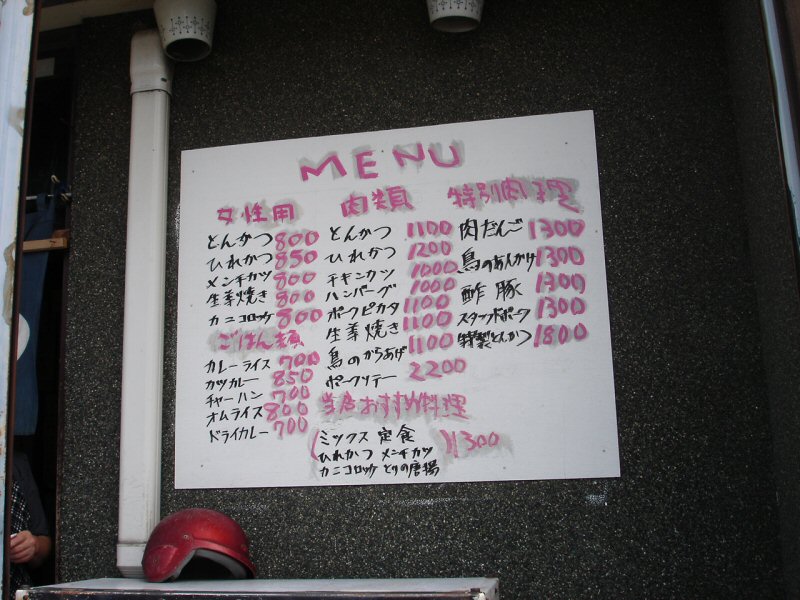 MENU
女性用
とんかつ 800
ひれかつ 850
メンチカツ 800
生姜焼き 800
カニコロッケ 800
ごはん類
カレーライス 700
カツカレー 850
チャーハン 700
オムライス 800
ドライカレー 700
肉類
とんかつ 1100
ひれかつ 1200
チキンカツ 1000
ハンバーグ 1000
ポークピカタ 1100
生姜焼き 1100
鳥のからあげ 1100
ポークソテー 2200
特別肉料理
肉だんご 1300
鳥のあんかけ 1300
酢豚 1300
スタッフドポーク 1300
特製とんかつ 1800
当店おすすめ料理
(ミックス定食 )1300
ひれかつ メンチカツ
カニコロッケ とりの唐揚